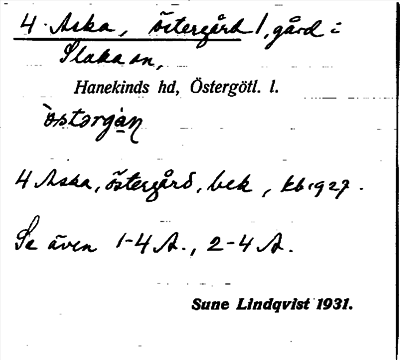 4 Aska, Östergård /, gård i
Slaka sn,
Hanekinds hd, Östergötl. l.
östərgàṇ
4 Aska, Östergård, bek, kb 1927.
Se även 1-4 A., 2-4 A.
Sune Lindqvist 1931.